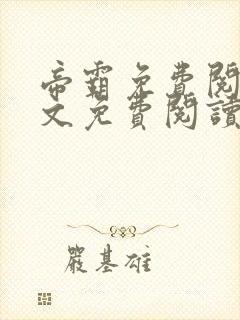 帝霸免費閱
文免費閱讀
嚴基雄